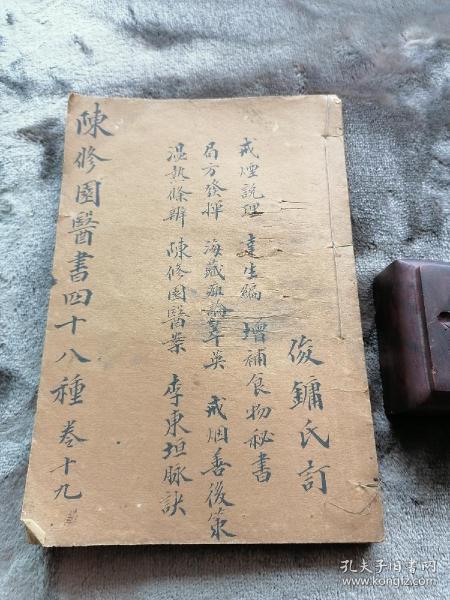 俊鏞氏訂
戒煙說理 達生編 增補食物秘書
局方發揮 海藏癍論萃英 戒烟善後策
温熱條辨 陳修园醫案 李東垣脉訣
陳修园醫書四十八種 卷十九
孔夫子旧书网
www.kongfz.com